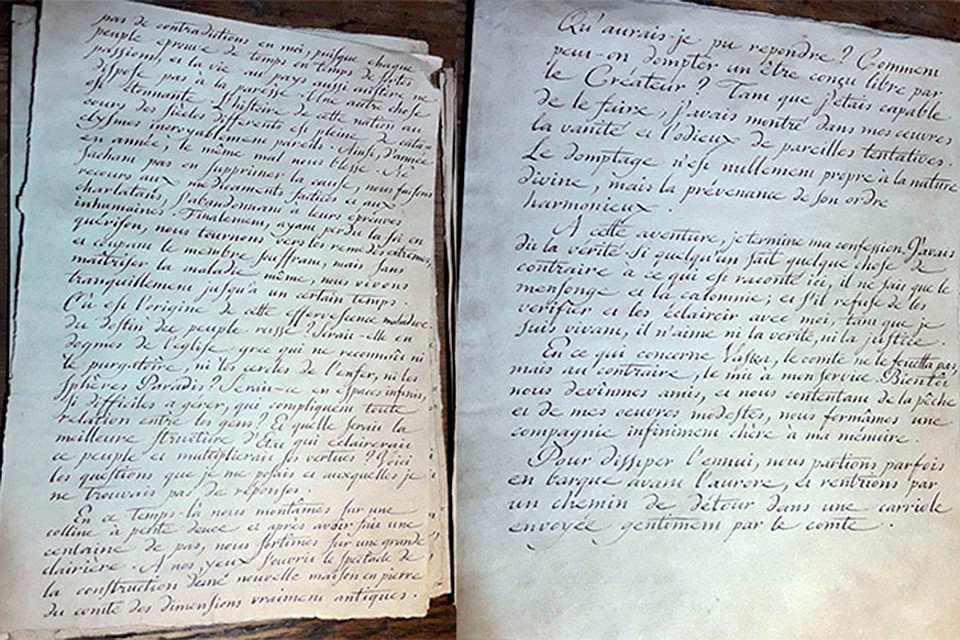 pas de contradictions en moi, puisque chaque
peuple éprouve de temps en temps de fortes
passions, et la vie au pays aussi austère ne
dispose pas à la paresse. Une autre chose
est étonnante. L'histoire de cette nation au
cours des siècles différents est pleine de cata-
clysmes incroyablement pareils. Ainsi, d'année
en année, le même mal nous blesse. Ne
sachant pas en supprimer la cause, nous faisons
recours aux médicaments factices et aux
charlatans, s'abandonnant à leurs épreuves
inhumaines. Finalement, ayant perdu la foi en
guérison, nous tournons vers les remèdes extrêmes,
et coupant le membre souffrant, mais sans
maîtriser la maladie même, nous vivons
tranquillement jusqu'à un certain temps.
Où est l'origine de cette effervescence maladive
du destin du peuple russe? Serait-elle en
dogmes de l'église grec qui ne reconnaît ni
le purgatoire, ni les cercles de l'enfer, ni les
sphères Paradis? Serait-ce en espaces infinis,
si difficiles à gérer, qui compliquent toute
relation entre les gens? Et quelle serait la
meilleure structure d'État qui éclairerait
ce peuple et multiplierait ses vertues? Voici
les questions que je me posais et auxquelles je
ne trouvais pas de réponses.
En ce temps-là nous montâmes sur une
colline à pente douce et après avoir fait une
centaine de pas, nous sortîmes sur une grande
clairière. A nos yeux s'ouvrit le spectacle de
la construction d'une nouvelle maison en pierre
du comte des dimensions vraiment antiques.
Qu'aurais-je pu répondre? Comment
peut-on dompter un être conçu libre par
le Créateur? Tant que j'étais capable
de le faire, j'avais montré dans mes œuvres
la vanité et l'odieux de pareilles tentatives.
Le domptage n'est nullement propre à la nature
divine, mais la prévenance de son ordre
harmonieux.
A cette aventure, je termine ma confession. J'avais
dit la vérité. Si quelqu'un sait quelque chose de
contraire à ce qui est raconté ici, il ne sait que le
mensonge et la calomnie; et s'il refuse de les
vérifier et les éclaircir avec moi, tant que je
suis vivant, il n'aime ni la vérité, ni la justice.
En ce qui concerne Vaska, le comte ne le fouetta pas,
mais au contraire, le mit à mon service. Bientôt
nous devînmes amis, et nous contentant de la pêche
et de mes oeuvres modestes, nous formâmes une
compagnie infiniment chère à ma mémoire.
Pour dissiper l'ennui, nous partions parfois
en barque avant l'aurore, et rentrions par
un chemin de détour dans une carriole
envoyée gentiment par le comte.